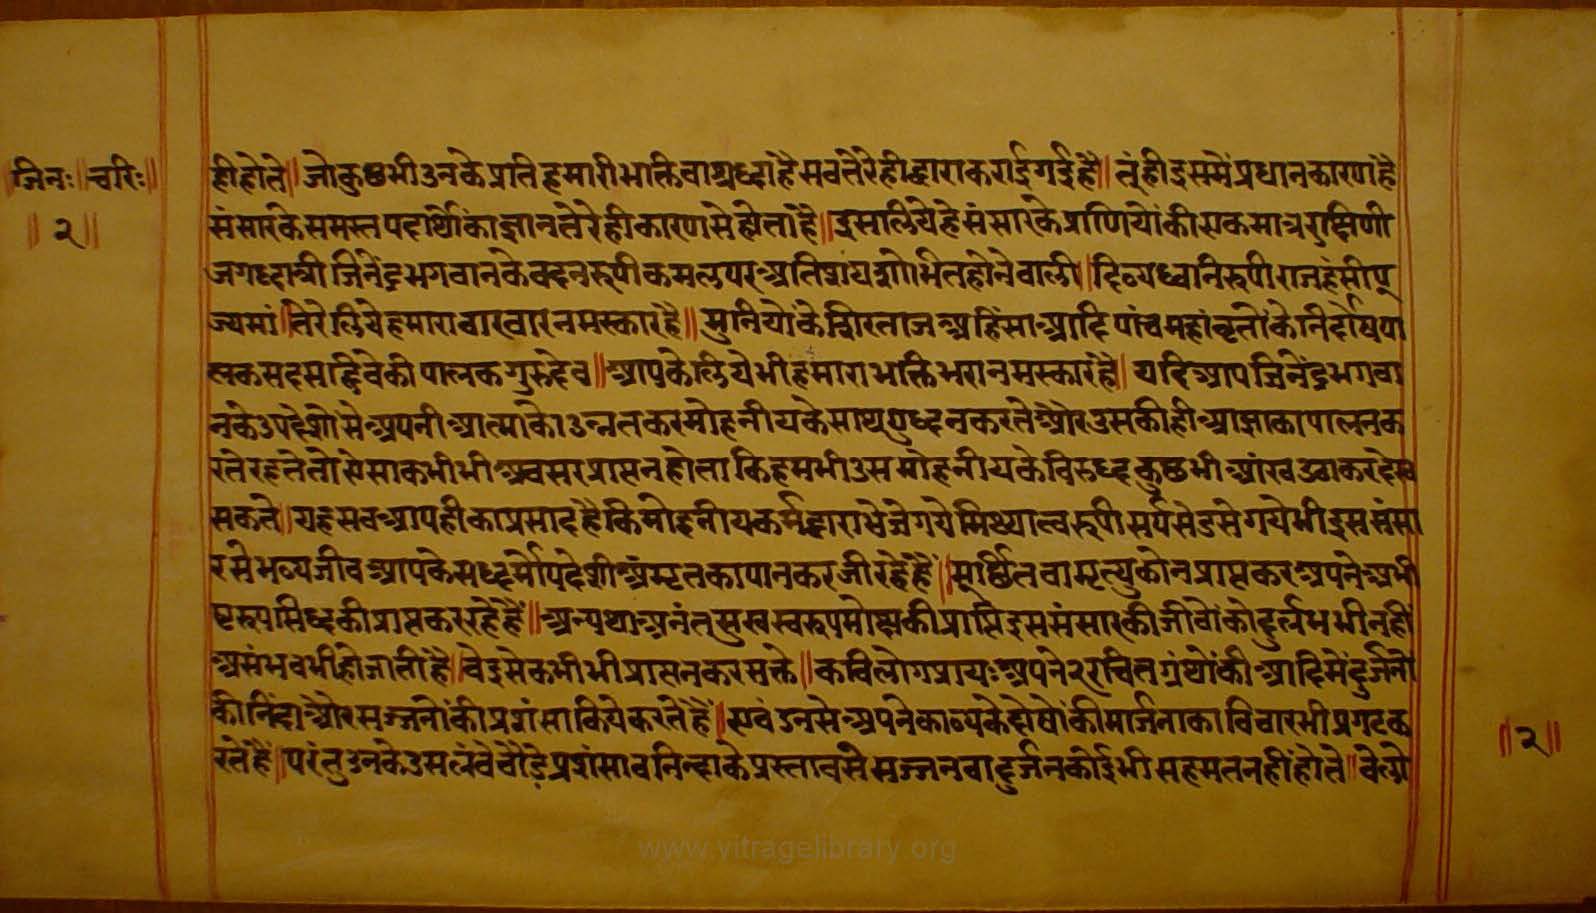 ॥जिनः॥चरिः॥
॥२॥
हीहोते॥जोकुछभीउनकेप्रतिहमारीभक्तिवाश्रध्दाहैसबतेरेहीद्वाराकराईगईहै॥तूंहीइसमेंप्रधानकारणहै
संसारकेसमस्तपदार्थोंकाज्ञानतेरेहीकारणसेहोताहै॥इसलियेहेसंसारकेप्राणियोंकीएकमात्ररक्षिणी
जगध्दात्रीजिनेंद्रभगवानकेवदनरुपीकमलपरअतिशयशोभितहोनेवाली॥दिव्यध्वनिरुपीराजहंसीपू
ज्यमां॥तेरेलियेहमाराबारबारनमस्कारहै॥मुनियोंकेशिरताजअहिंसाआदिपांचमहांवृतोंकेनिर्दोषपा
लकसदसद्विवेकीपालकगुरुदेव॥आपकेलियेभीहमाराभक्तिभरानमस्कारहै॥यदिआपजिनेंद्रभगवा
नकेउपदेशोसेअपनीआत्माकोउन्नतकरमोहनीयकेसाथयुध्दनकरतेऔरउसकीहीआज्ञाकापालनक
रतेरहतेतोऐसाकभीभीअवसरप्राप्तनहोताकिहमभीउसमोहनीयकेविरुध्दकुछभीआंखउठाकरदेख
सकते॥यहसबआपहीकाप्रसादहैकिमोहनीयकर्मद्वाराभेजेगयेमिथ्यात्वरुपीसर्पसेडसेगयेभीइससंसा
रसेभव्यजीवआपकेसध्दर्मोपदेशीअंमृतकापानकरजीरहेहैं॥मूर्छितवामृत्युकोनप्राप्तकरअपनेअभी
ष्टरुपसिध्दकीप्राप्तकररहेहैं॥अन्यथाअनंतसुखस्वरुपमोक्षकीप्राप्तिइससंसारकीजीवोंकोदुर्लभभीनहीं
असंभवभीहोजातीहै॥वेइसेकभीभीप्राप्तनकरसक्ते॥कविलोगप्रायःअपने२रचितग्रंथोंकीआदिमेंदुर्जनों
कीनिंदाऔरसज्जनोंकीप्रशंसाकियेकरतेहैं॥एवंउनसेअपनेकाव्यकेदोषोंकीमार्जनाकाविचारभीप्रगटक
रतेहैं॥परंतुउनकेउसलंबेचौड़ेप्रशंसावनिन्दाकेप्रस्तावसेसज्जनवादुर्जनकोईभीसहमतनहींहोते॥वेलो
॥२॥
www.vitragelibrary.org